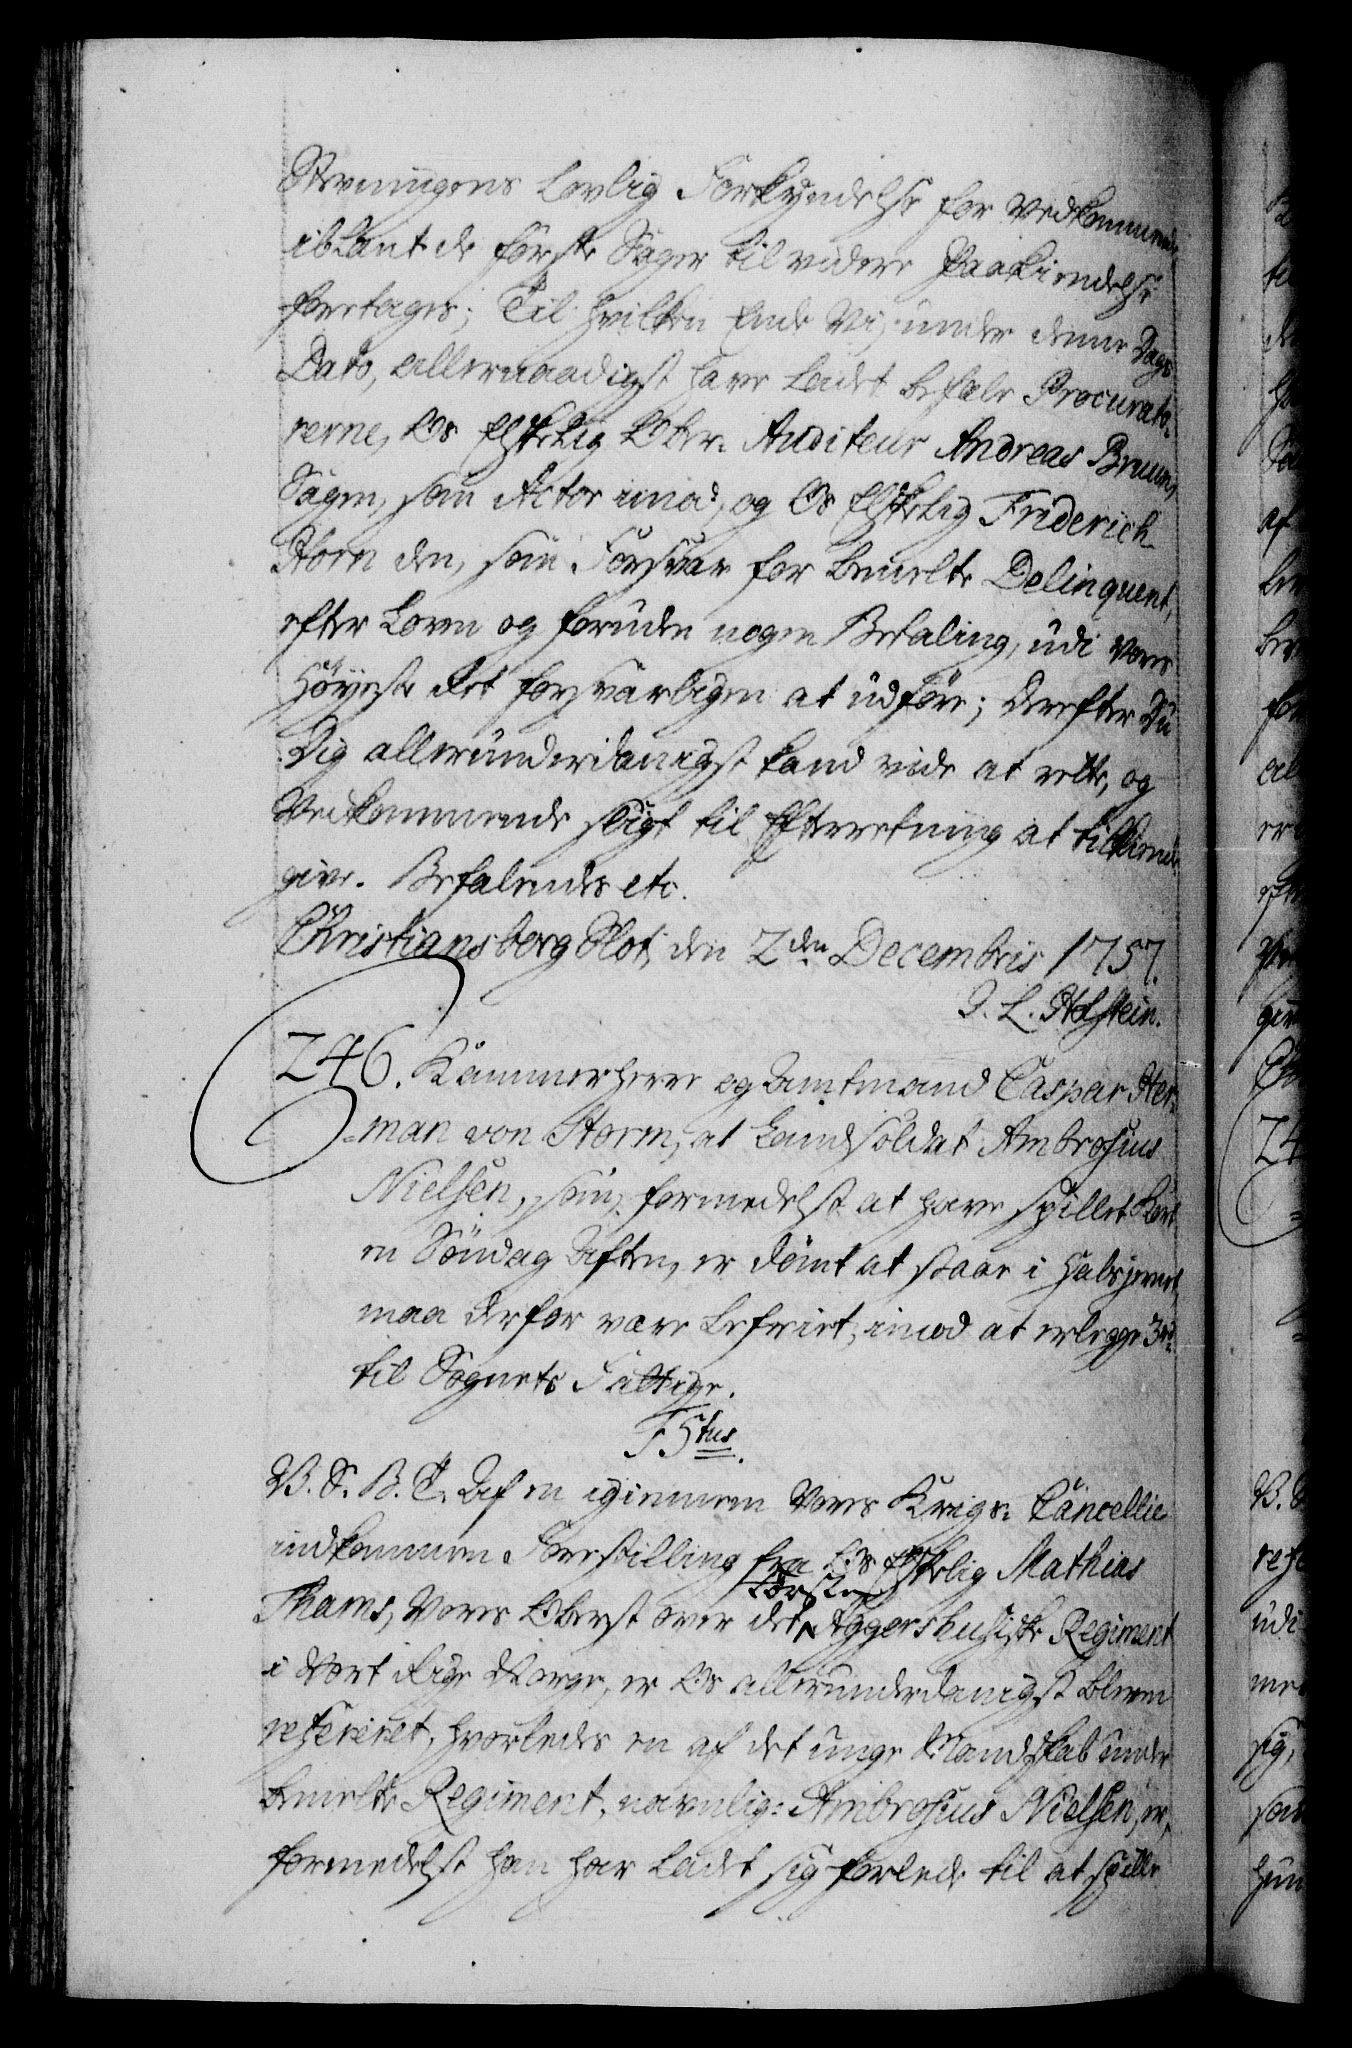 Stevningens lovlig Forkyndelse for Vedkommende
iblant de første Sager til videre Paakiendelse
foretages; Til hvilken Ende Vi under denne Dags
Dato, allernaadigst have ladet befale Procurato-
rerne, Os Elskelig Ober-Auditeur Andreas Bruun,
Sagen, som Actor imod, og Os Elskelig Friderich
Horn den, som Forsvar for bemelte Delinquent,
efter Loven og foruden nogen Betaling, udi Vores
Høyeste Ret forsvarligen at udføre; Derefter Du
Dig allerunderdanigst kand vide at rette, og
Vedkommende sligt til Efterretning at tilkiende
give. Befalendes etc.
Christiansborg Slot, den 2den Decembris 1757.
J. L. Holstein.
246. Kammerherre og Amtmand Caspar Her-
-man von Storm, at Landsoldat Ambrosius
Nielsen, som, formedelst at have spillet Kort
en Søndag Aften, er dømt at staae i Halsjernet,
maa derfor være befriet, imod at erlegge 3 rd.
til Sognets Fattige.
F5tus.
V. S. B. T. Af en igiennem Vores Krigs-Cancellie
indkommen Forestilling fra Os Elskelig Mathias
første
Thams, Vores Oberst over det Aggershusiske Regiment
i Vort Rige Norge, er Os allerunderdanigst bleven
refereret, hvorledes en af det unge Mandskab under
bemelte Regiment, navnlig: Ambrosius Nielsen, er,
formedelst han har ladet sig forlede til at spille